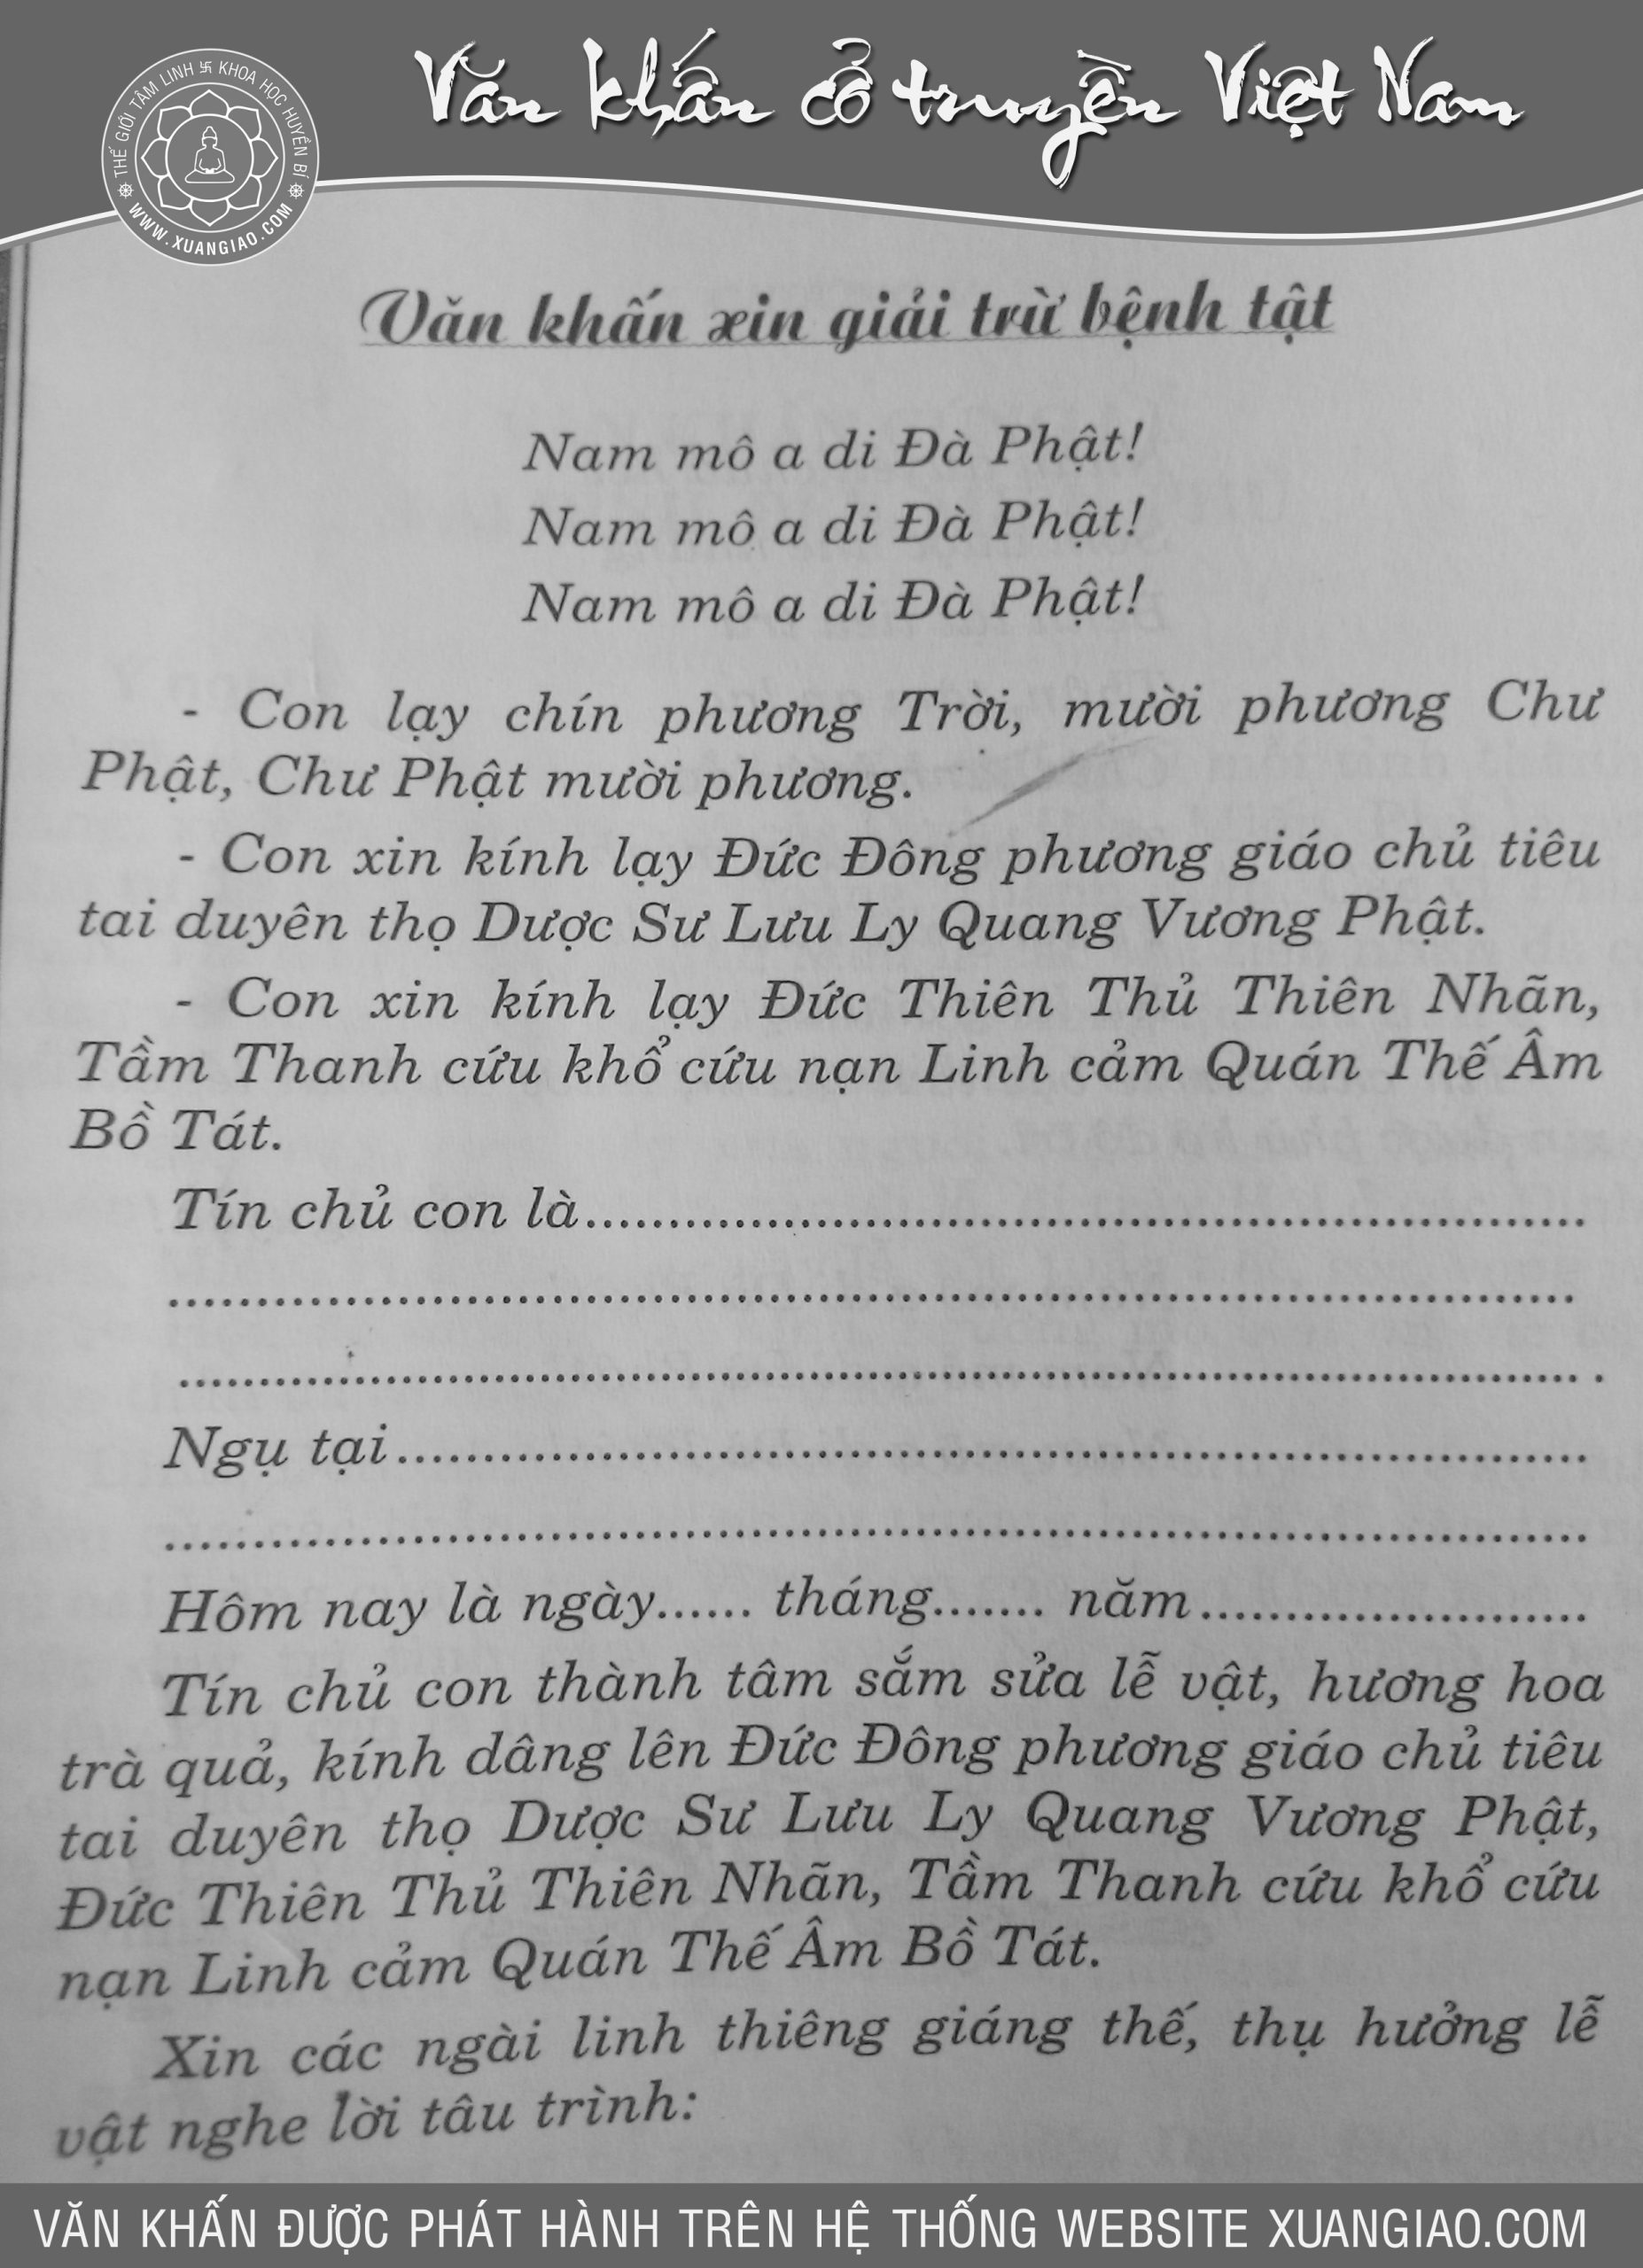 Văn khấn cổ truyền Việt Nam
THẾ GIỚI TÂM LINH 卐 KHOA HỌC HUYỀN BÍ
WWW.XUANGIAO.COM
Văn khấn xin giải trừ bệnh tật
Nam mô a di Đà Phật!
Nam mô a di Đà Phật!
Nam mô a di Đà Phật!
- Con lạy chín phương Trời, mười phương Chư
Phật, Chư Phật mười phương.
- Con xin kính lạy Đức Đông phương giáo chủ tiêu
tai duyên thọ Dược Sư Lưu Ly Quang Vương Phật.
- Con xin kính lạy Đức Thiên Thủ Thiên Nhãn,
Tầm Thanh cứu khổ cứu nạn Linh cảm Quán Thế Âm
Bồ Tát.
Tín chủ con là..............................................................
................................................................................
................................................................................
Ngụ tại........................................................................
................................................................................
Hôm nay là ngày...... tháng....... năm........................
Tín chủ con thành tâm sắm sửa lễ vật, hương hoa
trà quả, kính dâng lên Đức Đông phương giáo chủ tiêu
tai duyên thọ Dược Sư Lưu Ly Quang Vương Phật,
Đức Thiên Thủ Thiên Nhãn, Tầm Thanh cứu khổ cứu
nạn Linh cảm Quán Thế Âm Bồ Tát.
Xin các ngài linh thiêng giáng thế, thụ hưởng lễ
vật nghe lời tâu trình:
VĂN KHẤN ĐƯỢC PHÁT HÀNH TRÊN HỆ THỐNG WEBSITE XUANGIAO.COM